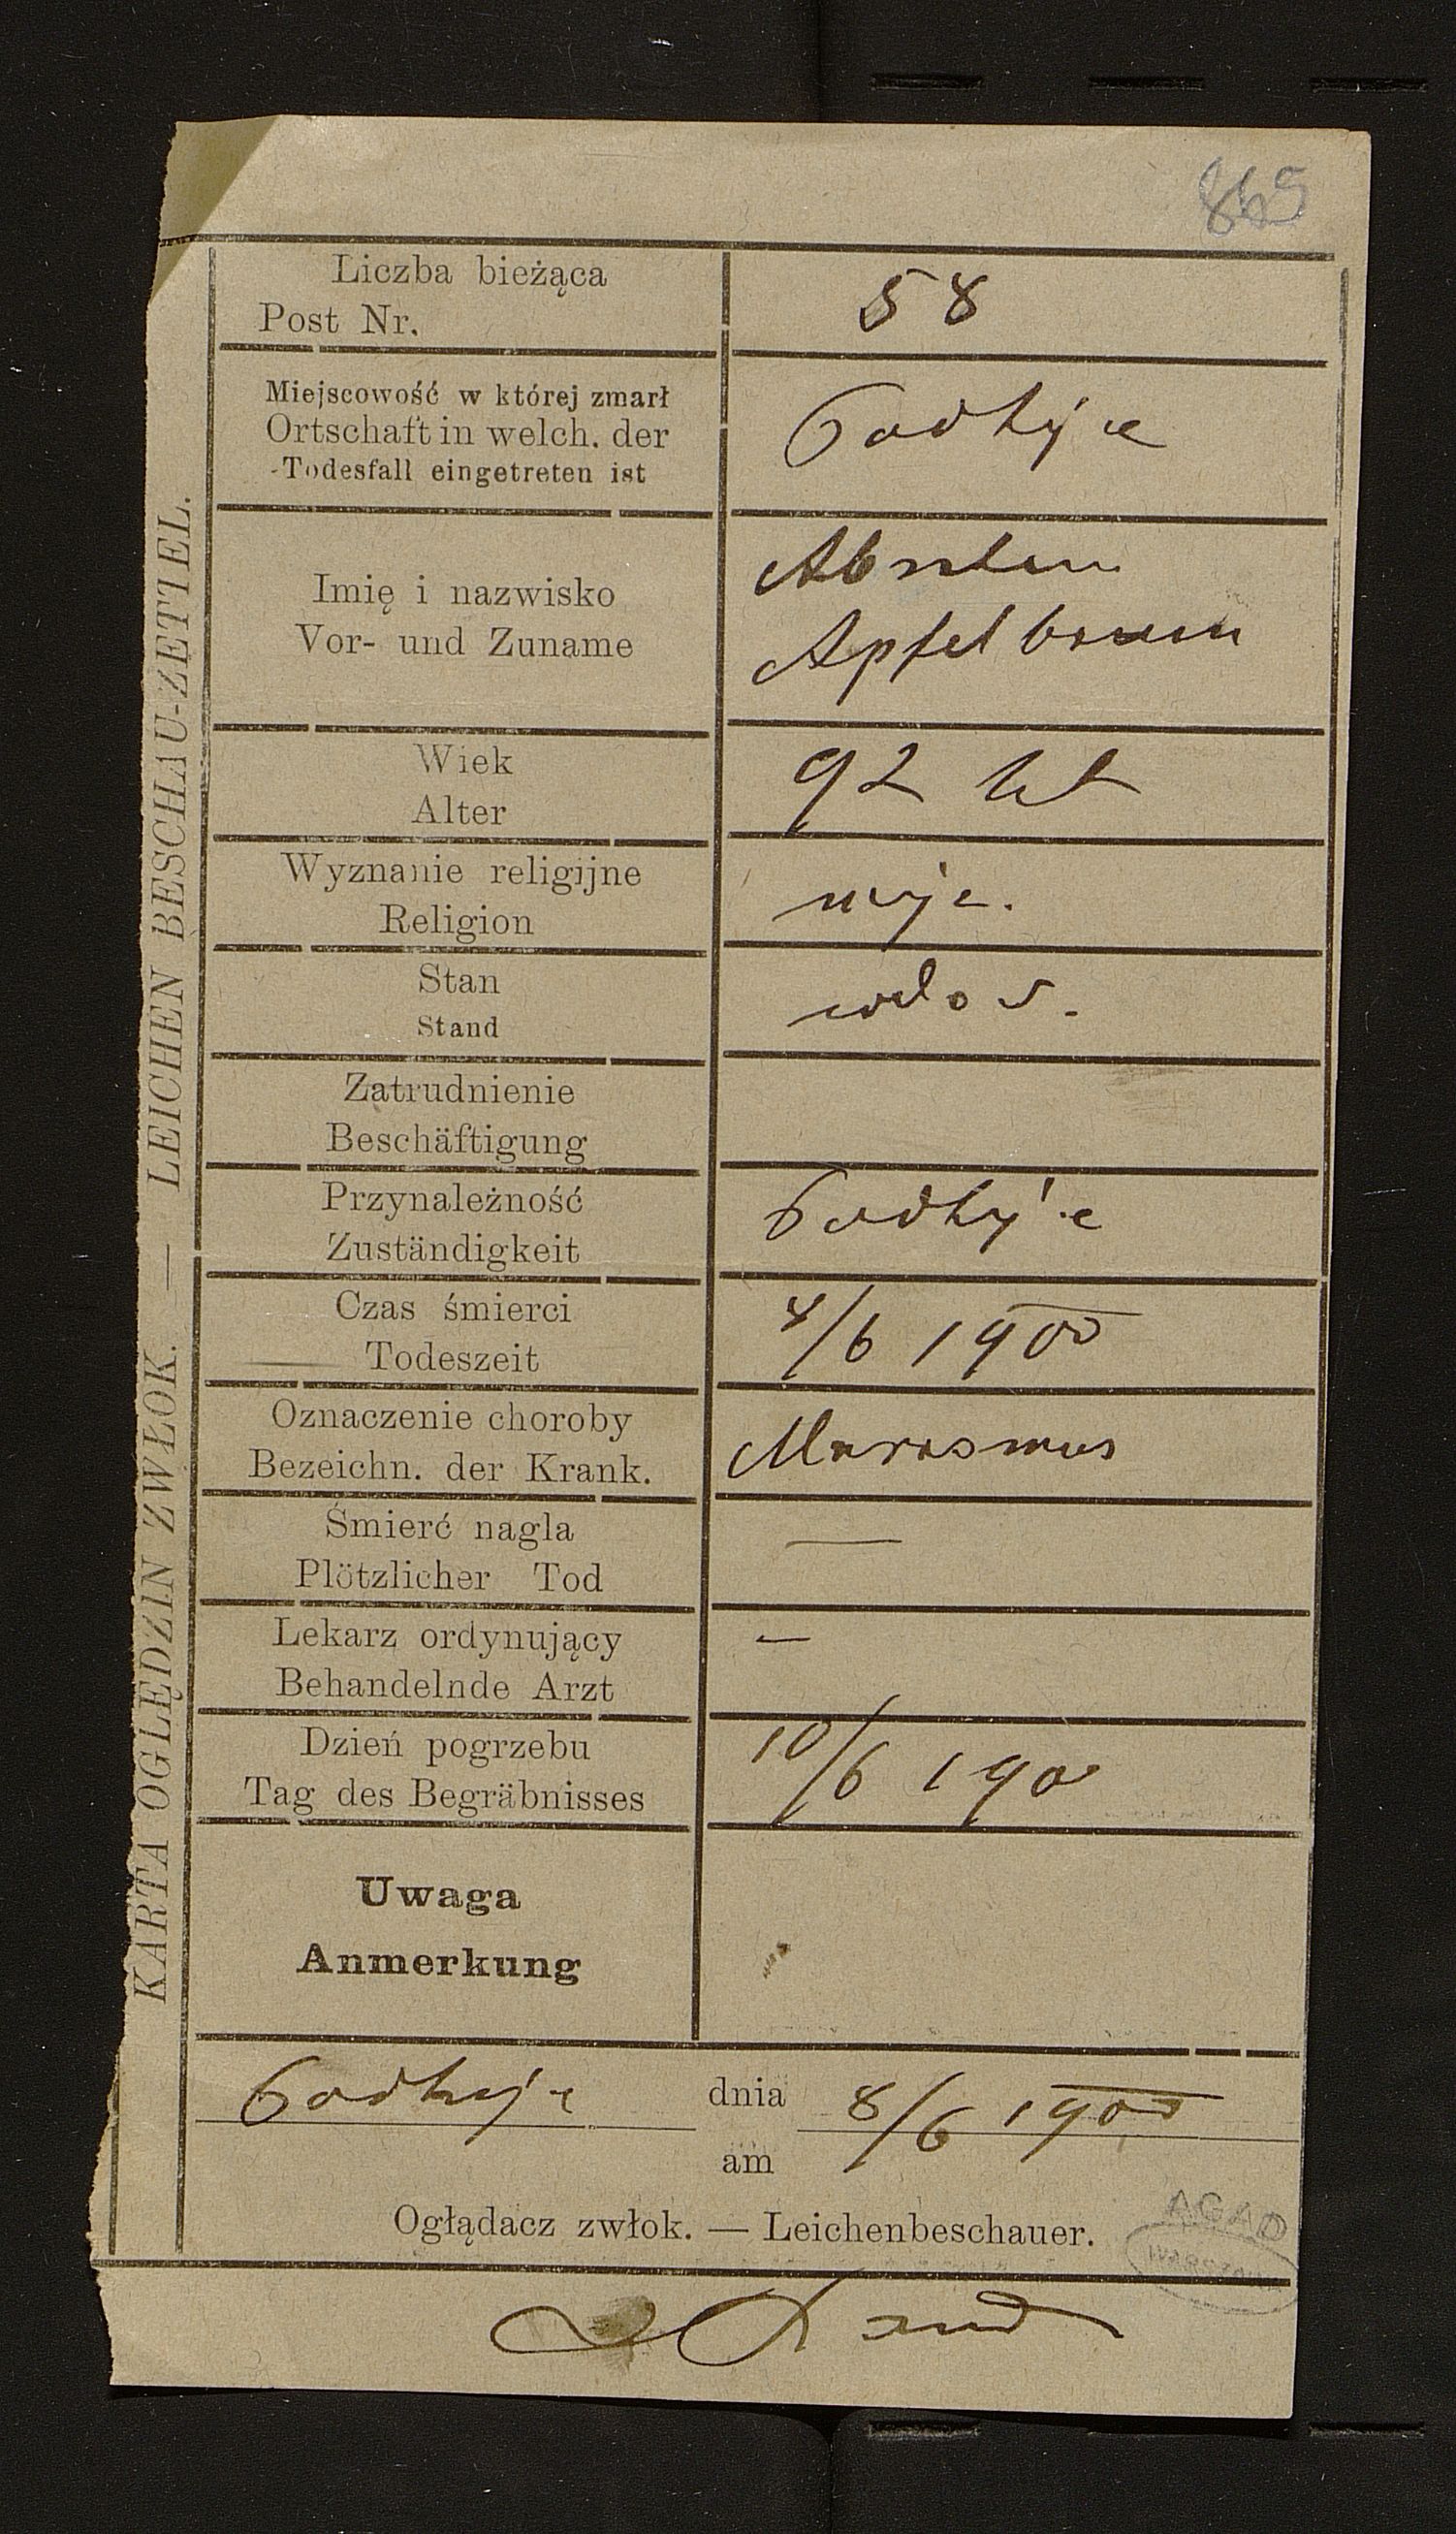 865
KARTA OGLĘDZIN ZWŁOK. — LEICHEN BESCHAU-ZETTEL.
Liczba bieżąca
Post Nr.
58
Miejscowość w której zmarł
Ortschaft in welch. der
Todesfall eingetreten ist
Podhyce
Imię i nazwisko
Vor- und Zuname
Abraham
Apfelbaum
Wiek
Alter
92 lat
Wyznanie religijne
Religion
mojż.
Stan
Stand
wdow.
Zatrudnienie
Beschäftigung
Przynależność
Zuständigkeit
Czas śmierci
Todeszeit
8/6 1900
Oznaczenie choroby
Bezeichn. der Krank.
Marasmus
Śmierć nagla
Plötzlicher Tod
—
Lekarz ordynujący
Behandelnde Arzt
—
Dzień pogrzebu
Tag des Begräbnisses
10/6 190
Uwaga
Anmerkung
dnia 8/6 1900
am
Oglądacz zwłok. — Leichenbeschauer.
AGAD
WARSZAWA